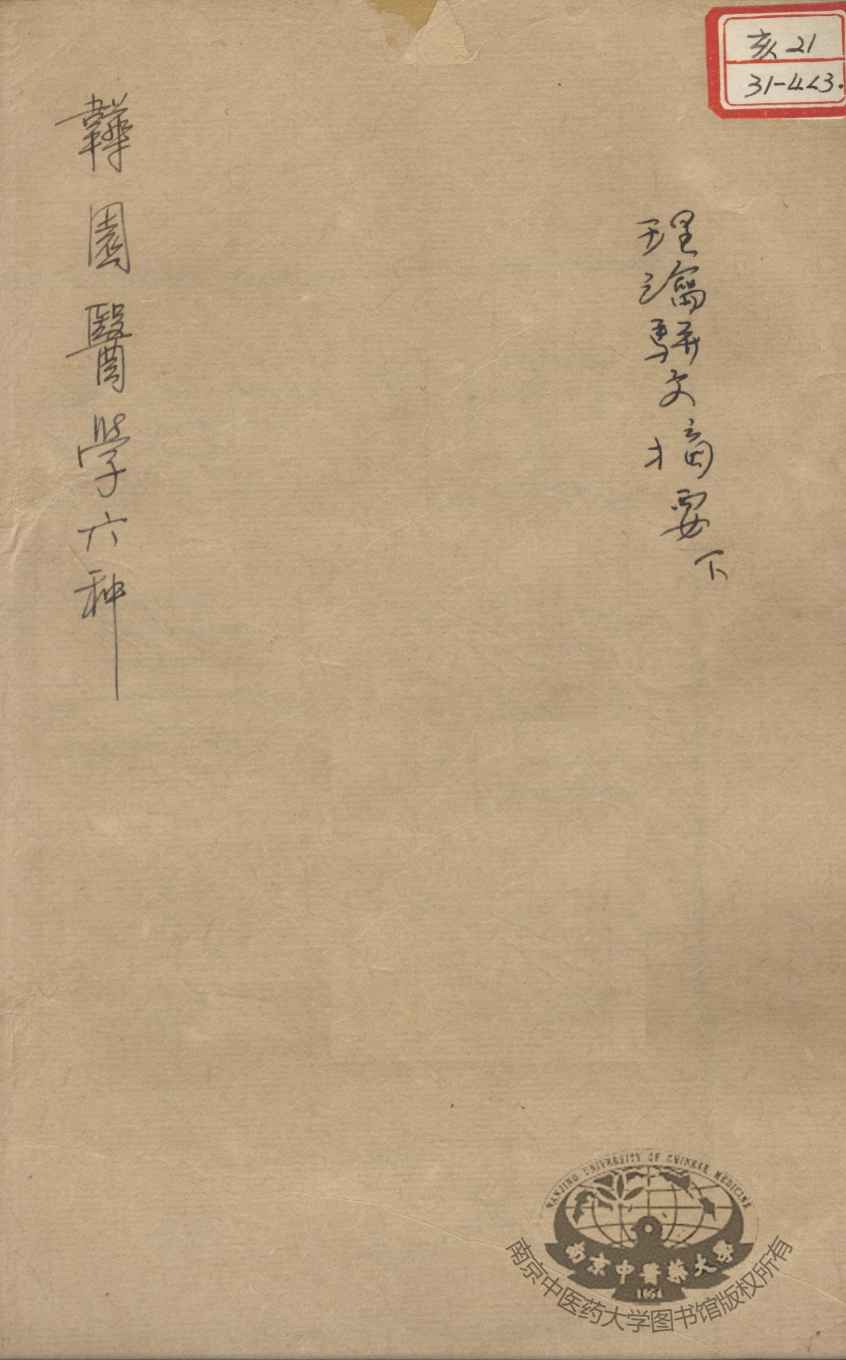 亥21
31-443.
理瀹駢文摘要下
韡園醫學六种
NANJING UNIVERSITY OF CHINESE MEDICINE
南京中醫藥大學
1954
南京中医药大学图书馆版权所有